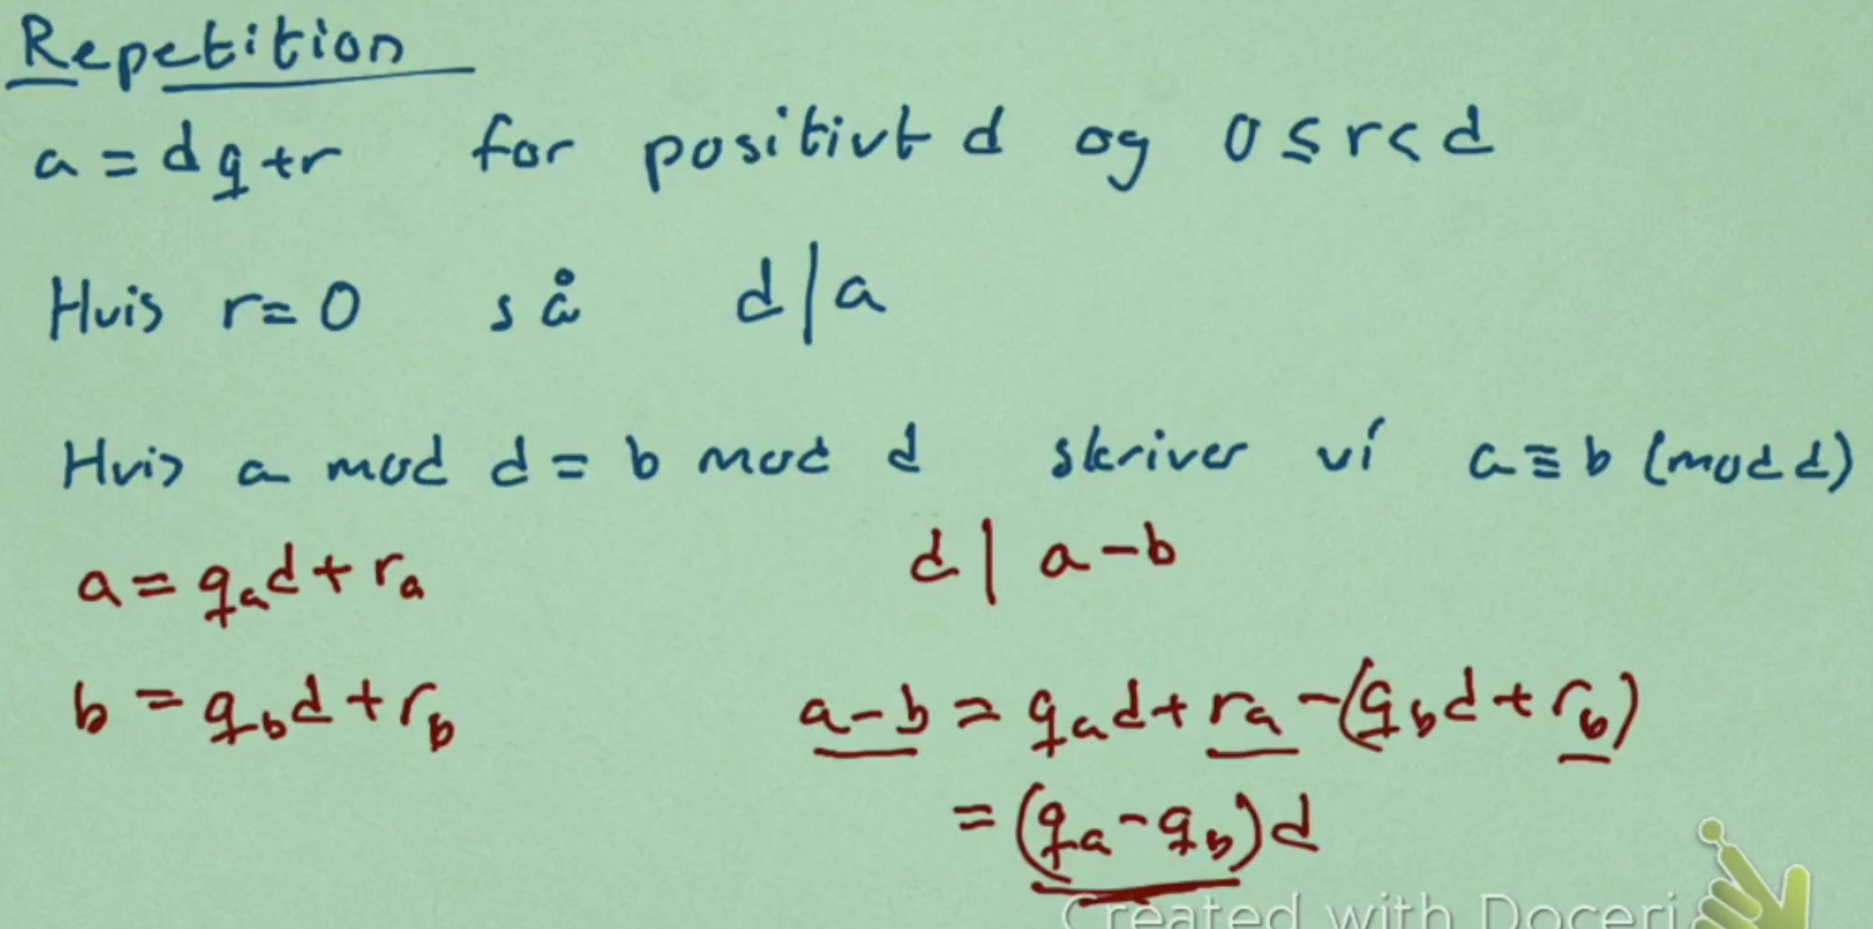 Repetition
a = dq + r for positivt d og 0 ≤ r < d
Hvis r = 0 så d | a
Hvis a mod d = b mod d skriver vi a ≡ b (mod d)
a = q_a d + r_a d | a - b
b = q_b d + r_b a - b = q_a d + r_a - (q_b d + r_b)
= (q_a - q_b) d
Created with Doceri